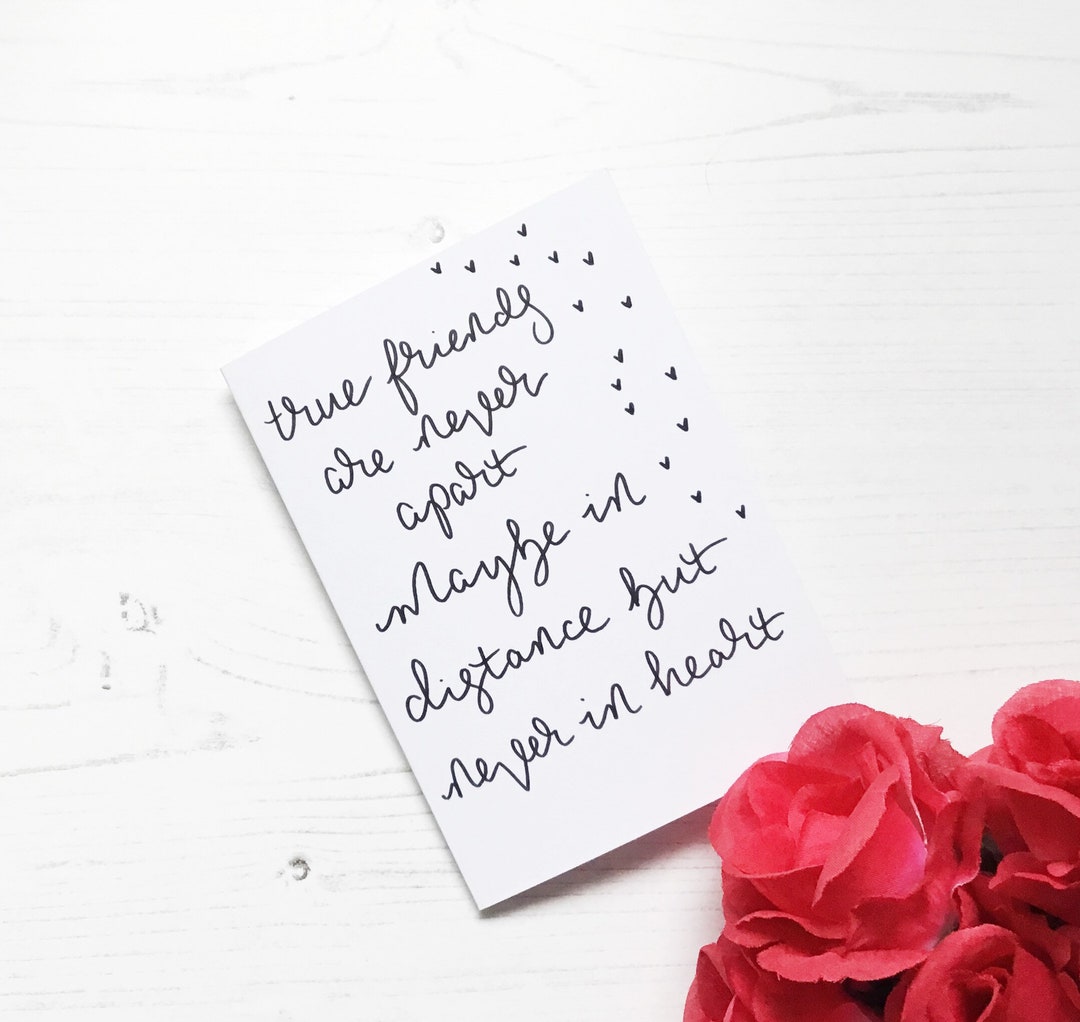 true friends
are never
apart
Maybe in
distance but
never in heart